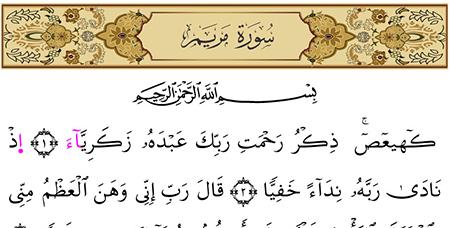 سُورَةُ مَرْيَمَ
بِسْمِ ٱللَّهِ ٱلرَّحْمَٰنِ ٱلرَّحِيمِ
كٓهيعٓصٓ ۚ ذِكْرُ رَحْمَتِ رَبِّكَ عَبْدَهُۥ زَكَرِيَّآءَ ﴿١﴾ إِذْ
نَادَىٰ رَبَّهُۥ نِدَآءً خَفِيًّا ﴿٢﴾ قَالَ رَبِّ إِنِّى وَهَنَ ٱلْعَظْمُ مِنِّى